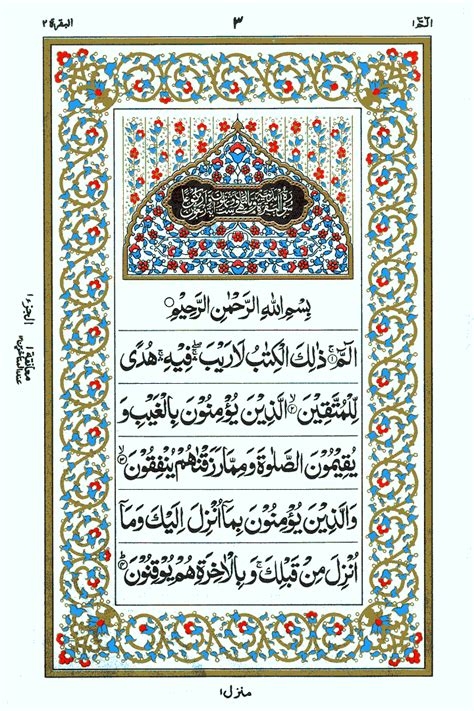 الٓمّٓ ١
٣
البقرة ٢
بِسْمِ اللهِ الرَّحْمٰنِ الرَّحِيْمِ
الٓمّٓ ۚ ۝١ ذٰلِكَ الْكِتٰبُ لَا رَيْبَ ۛ فِيْهِ ۛ هُدًى
لِّلْمُتَّقِيْنَ ۝٢ الَّذِيْنَ يُؤْمِنُوْنَ بِالْغَيْبِ وَ
يُقِيْمُوْنَ الصَّلٰوةَ وَمِمَّا رَزَقْنٰهُمْ يُنْفِقُوْنَ ۝٣
وَالَّذِيْنَ يُؤْمِنُوْنَ بِمَآ اُنْزِلَ اِلَيْكَ وَمَآ
اُنْزِلَ مِنْ قَبْلِكَ ۚ وَبِالْاٰخِرَةِ هُمْ يُوْقِنُوْنَ ۝٤
الجزء ١
معانقة ١
منزل ١